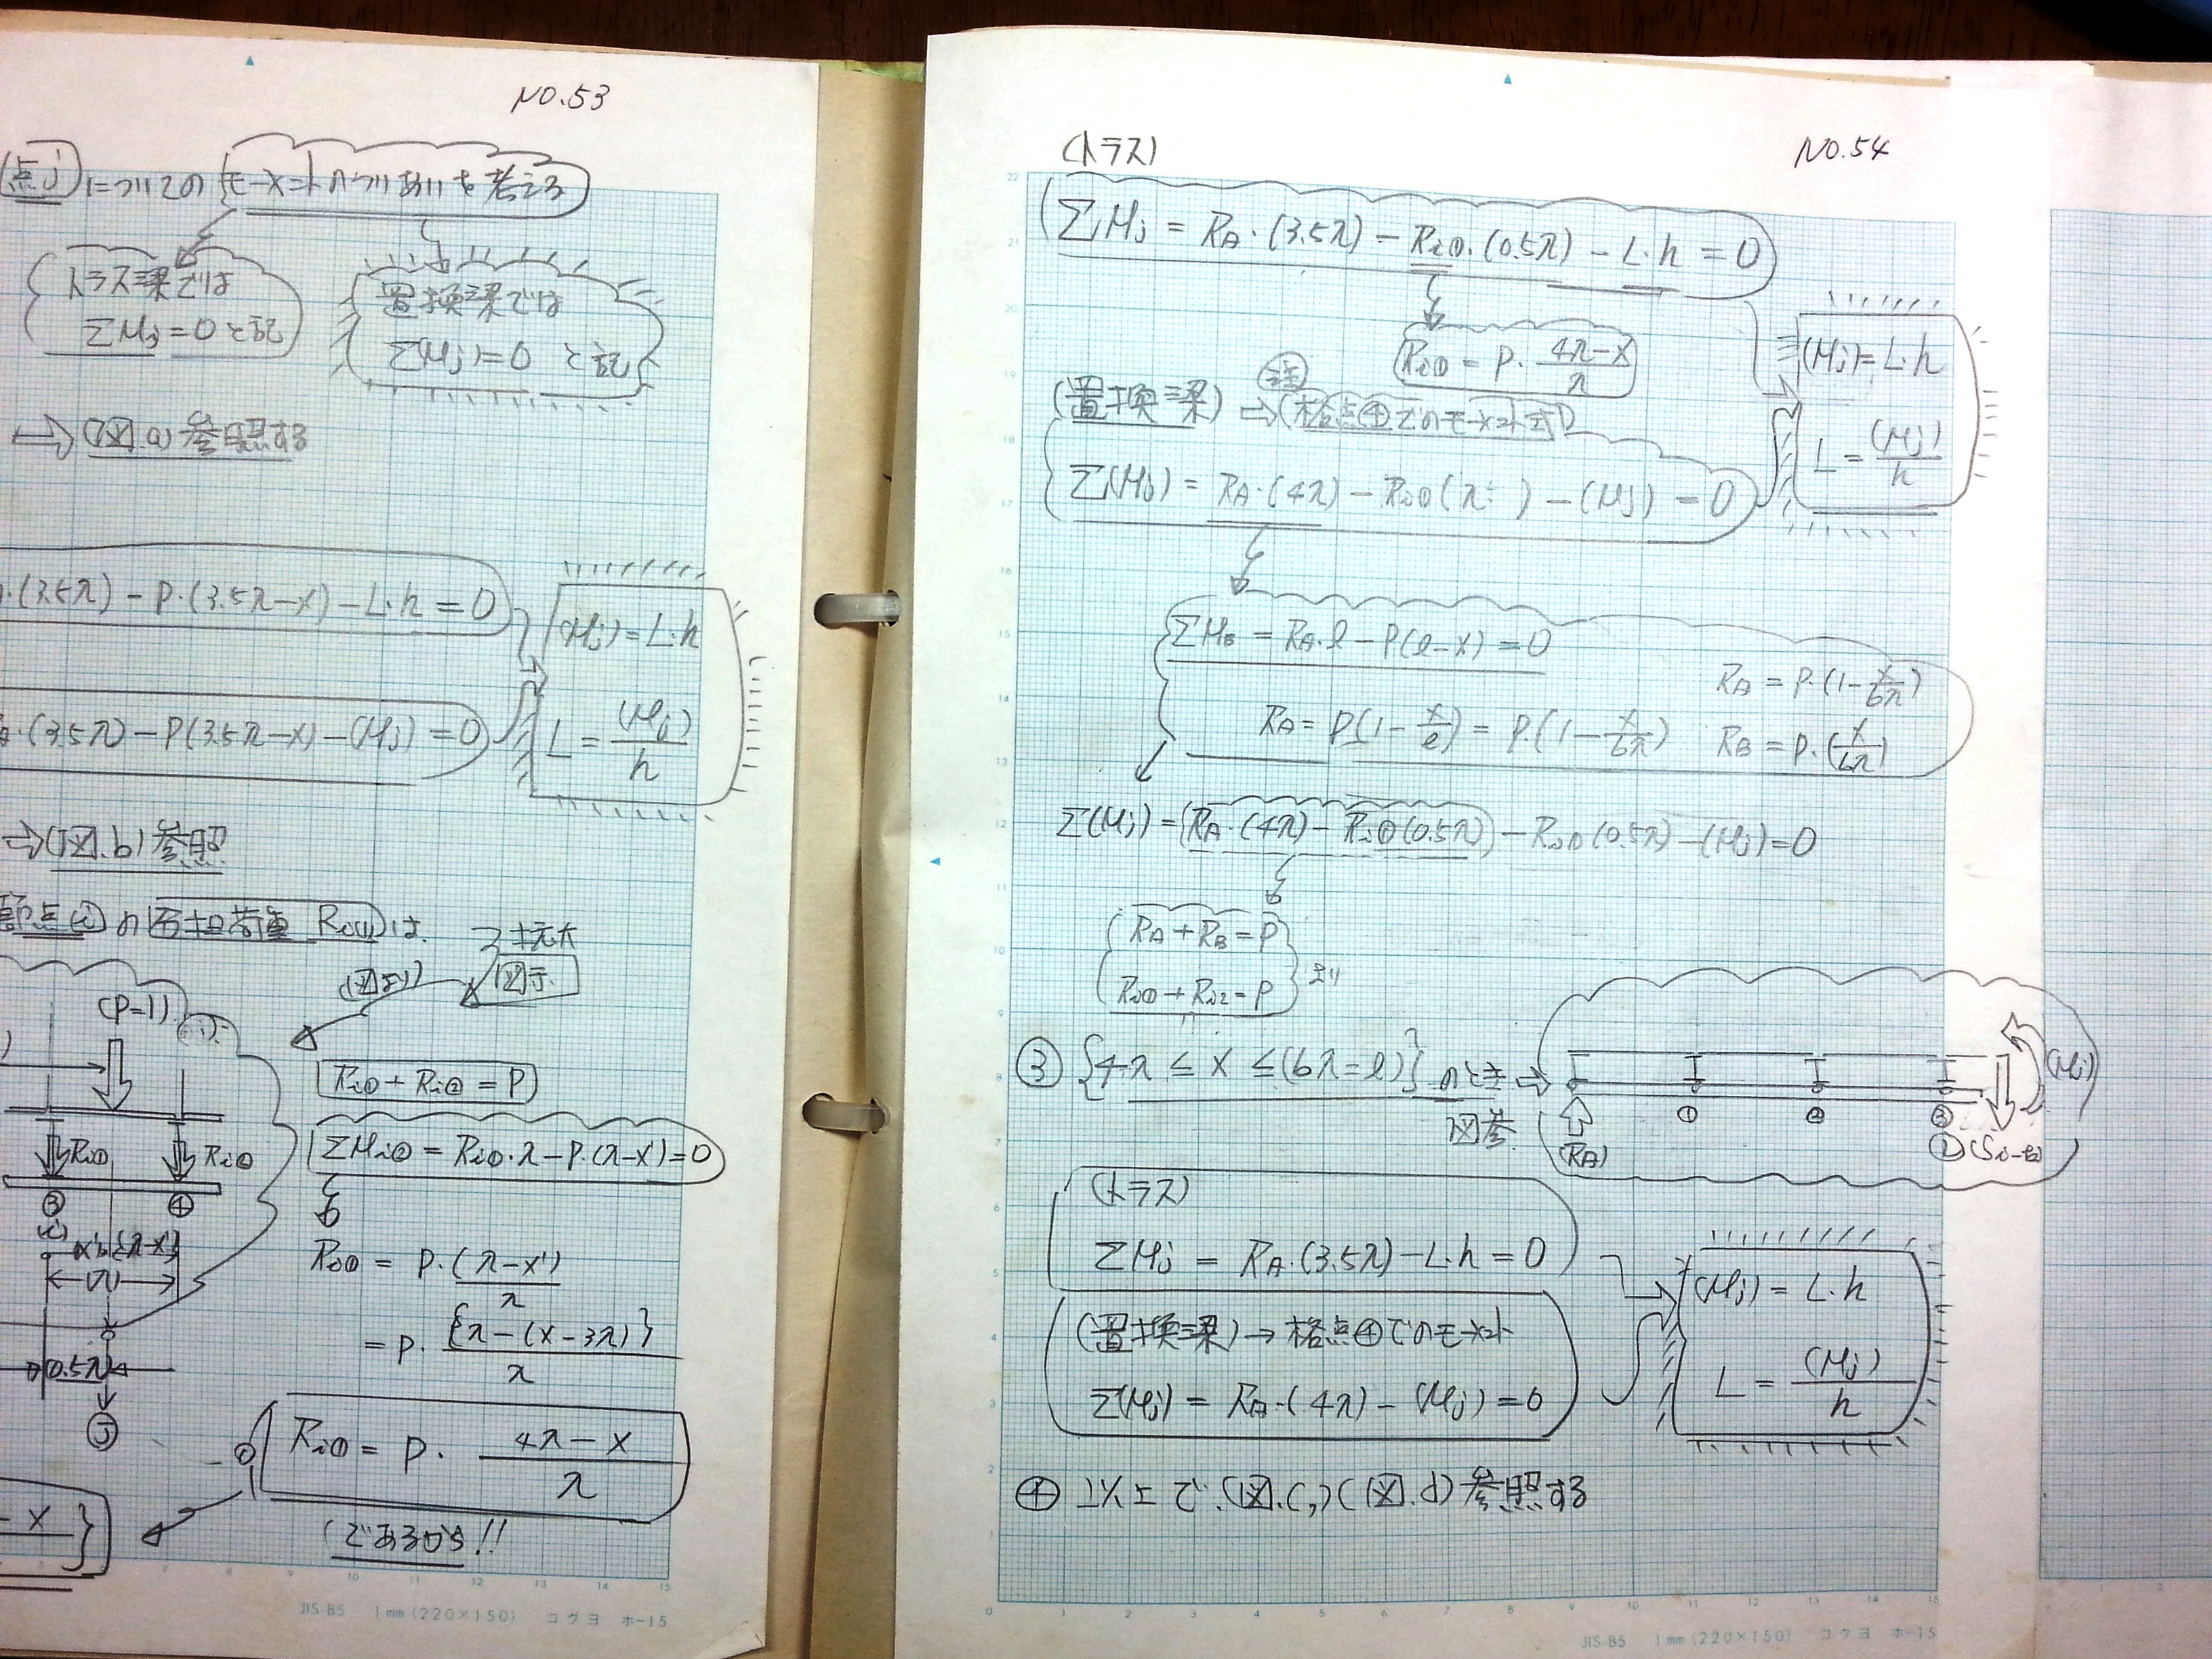 NO.53
(点j)についての{モーメントのつりあいを考える
トラス梁では
ΣMj=0と記
置換梁では
Σ(Mj)=0 と記
⇒(図.a)参照する
·(3.5λ)-P·(3.5λ-x)-L·h=0
·(3.5λ)-P(3.5λ-x)-(Mj)=0
(Mj)=L·h
L=(Mj)/h
⇒(図.b)参照
Ri①は
(図より)
図示
(P=1)
Ri①
Ri②
③
④
(i)
{λ-x'}
(λ)
0.5λ
ⓙ
Ri①+Ri②=P
ΣMi②=Ri①·λ-P·(λ-x')=0
Ri①=P·(λ-x')/λ
=P·{λ-(x-3λ)}/λ
Ri①=P·(4λ-x)/λ
(であるから!!
-x}
JIS-B5 1mm(220×150) コクヨ ホ-15
NO.54
(トラス)
ΣMj=RA·(3.5λ)-Ri①·(0.5λ)-L·h=0
Ri①=P·(4λ-x)/λ
(Mj)=L·h
L=(Mj)/h
(置換梁)⇒(格点④でのモーメント式)
注
Σ(Mj)=RA·(4λ)-Ri①(λ )-(Mj)=0
ΣMB=RA·l-P(l-x)=0
RA=P(1-x/l)=P·(1-x/6λ)
RA=P·(1-x/6λ)
RB=P·(x/6λ)
Σ(Mj)=(RA·(4λ)-Ri①(0.5λ))-Ri①(0.5λ)-(Mj)=0
RA+RB=P
Ri①+Ri2=P
より
③{4λ≤x≤(6λ=l)}のとき⇒
図参
(RA)
①
②
③
(Mj)
(トラス)
ΣMj=RA·(3.5λ)-L·h=0
(置換梁)→格点④でのモーメント
Σ(Mj)=RA·(4λ)-(Mj)=0
(Mj)=L·h
L=(Mj)/h
④以上で.(図.c,)(図.d)参照する
JIS-B5 1mm(220×150) コクヨ ホ-15